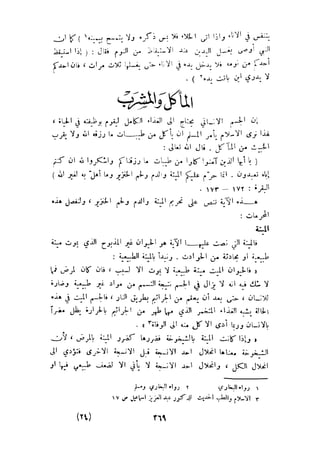 يتنفس في الإناء ، وإذا أتى الخلاء ، فلا يمس ذكره ولا يتمسح بيمينه ١ ) كما أن
النبي أوصى بغسل اليدين عند الاستيقاظ من النوم فقال : ( إذا استيقظ
أحدكم من نومه فلا يدخل يده في الإناء حتى يغسلها ثلاث مرات ، فإن أحدكم
لا يدري أين باتت يده ٢ ) .
المأكل والمشرب
إن الجسم الإنساني يحتاج إلى الغذاء الكامل ليقوم بوظيفته في الحياة ،
لهذا نرى الإسلام يأمر المسلم أن يأكل من طيبات ما رزقه الله ولا يقرب
الخبيث من المأكل . قال الله تعالى :
( يا أيها الذين آمنوا كلوا من طيبات ما رزقناكم واشكروا لله إن كنتم
إياه تعبدون . إنما حرم عليكم الميتة والدم ولحم الخنزير وما أهل به لغير الله )
البقرة : ١٧٢ — ١٧٣ .
هذه الآية تنص على تحريم الميتة والدم ولحم الخنزير ، ولنفصل هذه
المحرمات :
الميتة
فالميتة التي نصت عليها الآية هو الحيوان غير المذبوح الذي يموت ميتة
طبيعية أو بحادثة من الحوادث . ونبدأ بالميتة الطبيعية :
« فالحيوانات تموت ميتة طبيعية لا تموت إلا لسبب ، وإن كان المرض فيها
لا شك فيه إذ لا يزال في الجسم نتيجة التسمم من مواد غير طبيعية وضارة
للإنسان ، حتى بعد أن يعقم من الجراثيم بطريق النار ، فالجسم الميت في هذه
الحالة يشبه الغذاء المتخمر الذي مهما طهر من الجراثيم بالحرارة يظل مضراً
بالإنسان وربما أدى الأكل منه إلى الوفاة ٣ » .
« وإذا كانت الميتة بالشيخوخة فضررها كضرر الميتة بالمرض ، لأن
الشيخوخة معناها انحلال أحد الأنسجة قبل الأنسجة الأخرى فتؤدي إلى
انحلال الكل ، وانحلال أحد الأنسجة لا يأتي إلا لضعف غير طبيعي فيها أو
١ رواه البخاري ٢ رواه البخاري ومسلم
٣ الإسلام والطب الحديث للدكتور عبد العزيز إسماعيل ص ١٧
٣٦٩ (٢٤)